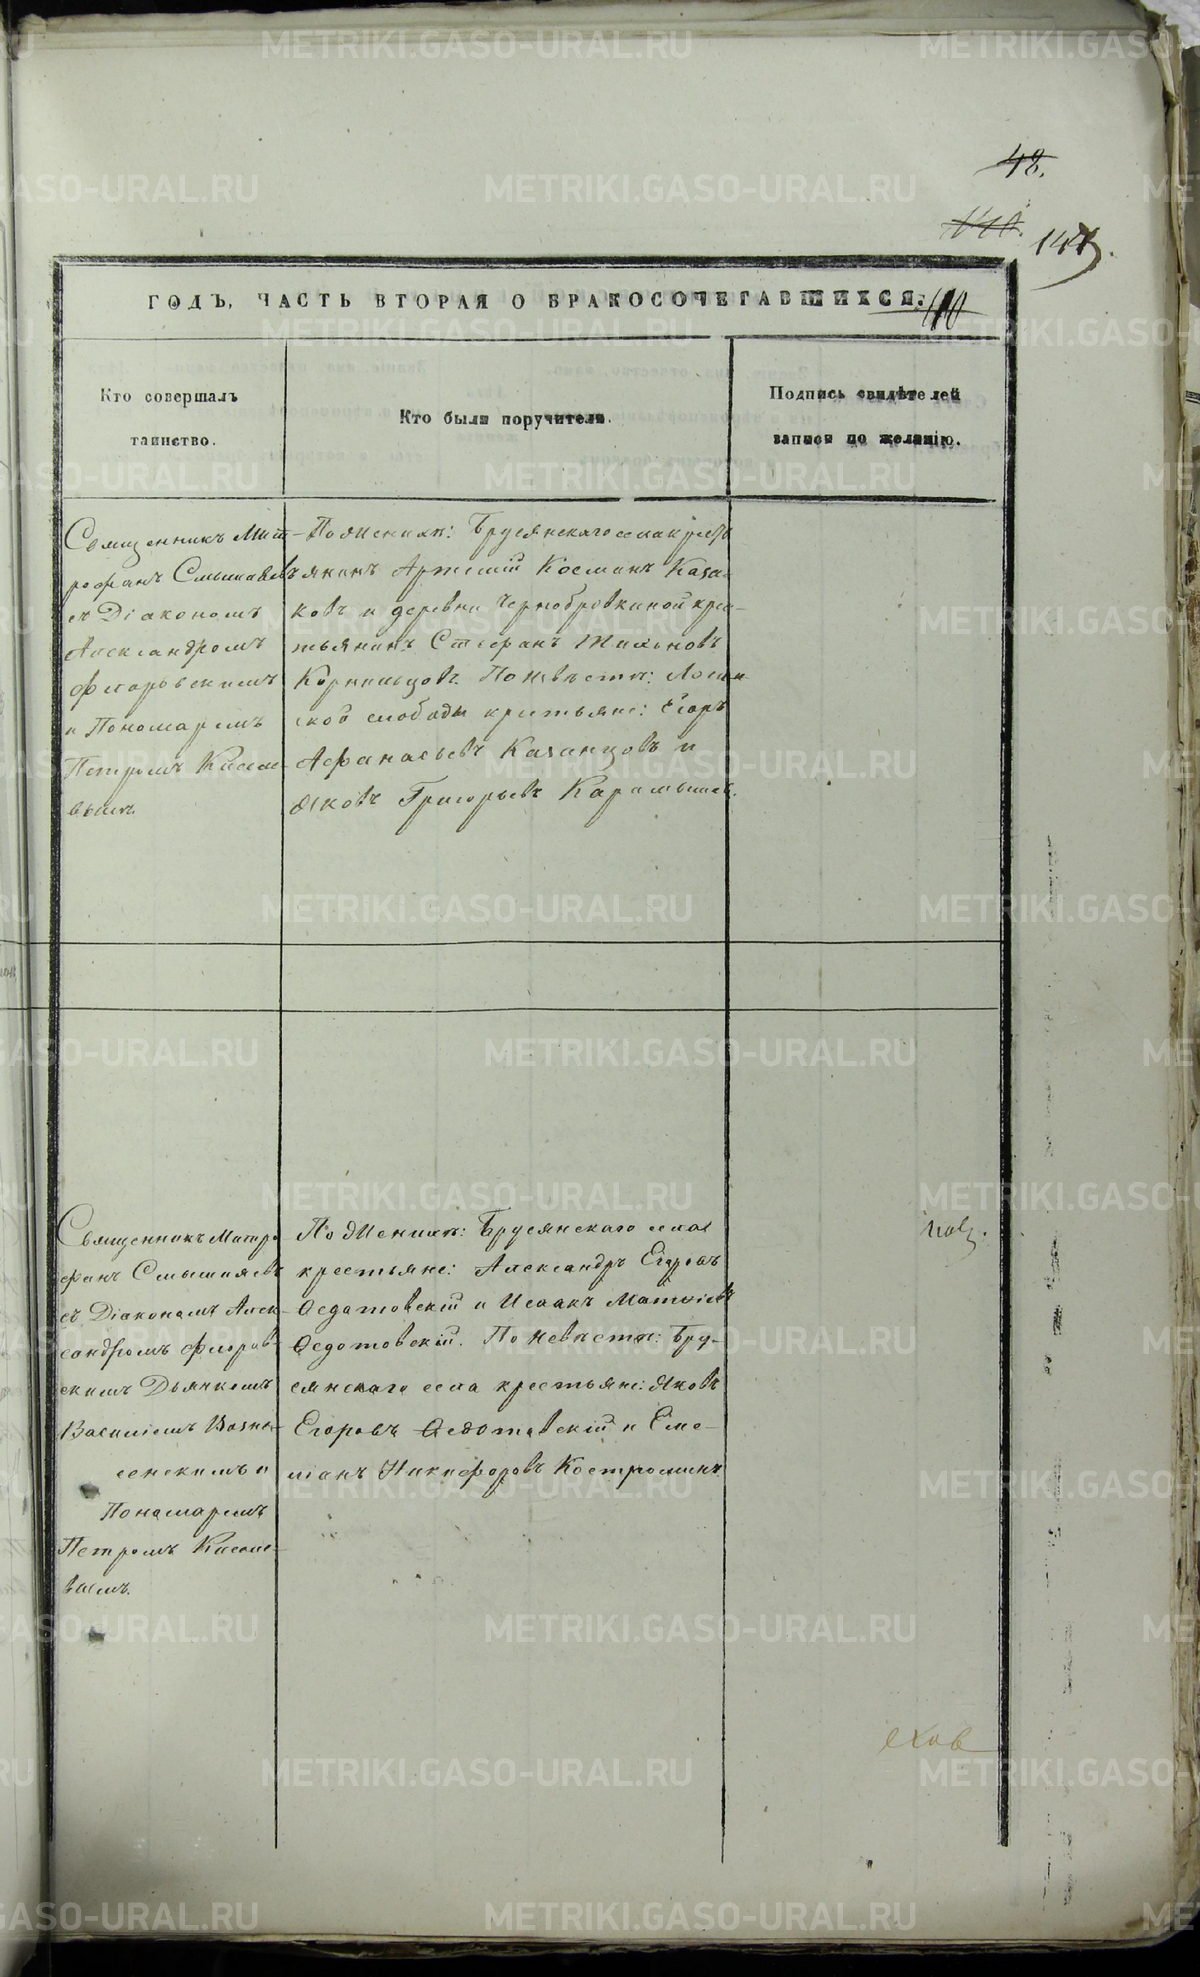 48.
140.
147.
ГОДЪ, ЧАСТЬ ВТОРАЯ О БРАКОСОЧЕТАВШИХСЯ.
Кто совершалъ
таинство.
Кто были поручители.
Подпись свидѣтелей
записи по желанію.
Священникъ Мит-
рофанъ Смышляевъ
съ Діакономъ
Александромъ
Флоровскимъ
и Пономаремъ
Петромъ Киселе-
вымъ.
По женихѣ: Брусянскаго села крест
янинъ Артемій Косминъ Каза-
ковъ и деревни Чернобровкиной крес-
тьянинъ Стефанъ Тихоновъ
Корнильцовъ. По невѣстѣ: Логин-
ской слободы крестьяне: Егоръ
Афанасьевъ Казанцовъ и
Яковъ Григорьевъ Карамышев.
Священникъ Митро
фанъ Смышляевъ
съ Діакономъ Алек-
сандромъ Флоров-
скимъ Дьячкомъ
Василіемъ Возне-
сенскимъ и
Пономаремъ
Петромъ Киселе-
вымъ.
По женихѣ: Брусянскаго села
крестьяне: Александръ Егоровъ
Ѳедотовскій и Исаакъ Матвіевъ
Ѳедотовскій. По невѣстѣ: Бру-
сянскаго села крестьяне: Яковъ
Егоровъ Ѳедотовскій и Еме-
ліанъ Никифоровъ Костроминъ
METRIKI.GASO-URAL.RU